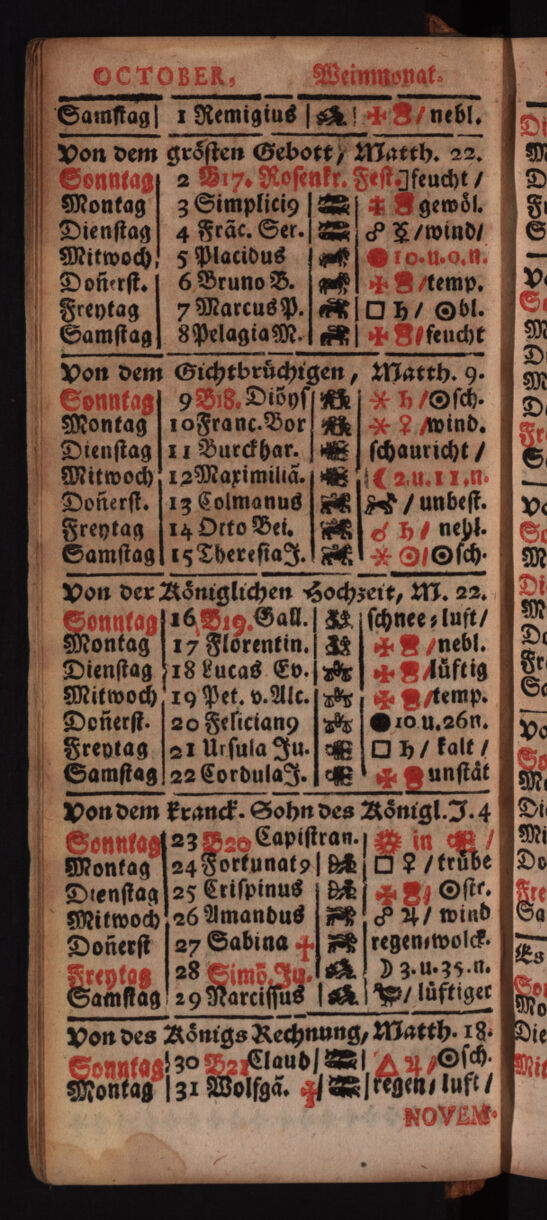 OCTOBER, Weinmonat.
Samstag 1 Remigius | nebl.
Von dem grösten Gebott, Matth. 22.
Sonntag 2 B17. Rosenkr. Fest. feucht /
Montag 3 Simplici9 gewöl.
Dienstag 4 Frãc. Ser. ☍ ☿ / wind /
Mitwoch 5 Placidus 10. u. 0. n.
Doñerst. 6 Bruno B. / temp.
Freytag 7 Marcus P. □ ♄ / ⊙bl.
Samstag 8 Pelagia M. / feucht
Von dem Gichtbrüchigen, Matth. 9.
Sonntag 9 B18. Diõys ⚹ ♄ / ⊙sch.
Montag 10 Franc. Bor ⚹ ♀ / wind.
Dienstag 11 Burckhar. schauricht /
Mitwoch 12 Maximiliã. ☾ 2. u. 11. n.
Doñerst. 13 Colmanus / unbest.
Freytag 14 Otto Bei. ☌ ♄ / nebl.
Samstag 15 Theresia J. ⚹ ⊙ / ⊙sch.
Von der Königlichen Hochzeit, M. 22.
Sonntag 16 B19. Gall. schnee = luft /
Montag 17 Florentin. / nebl.
Dienstag 18 Lucas Ev. / lüftig
Mitwoch 19 Pet. v. Alc. / temp.
Doñerst. 20 Felician9 ● 10 u. 26 n.
Freytag 21 Ursula Ju. □ ♄ / kalt /
Samstag 22 Cordula J. unstät
Von dem kranck. Sohn des Königl. J. 4
Sonntag 23 B20 Capistran. in /
Montag 24 Fortunat9 □ ♀ / trübe
Dienstag 25 Crispinus / ⊙str.
Mitwoch 26 Amandus ☍ ♃ / wind
Doñerst 27 Sabina regen = wolck.
Freytag 28 Simõ. Ju. ☽ 3. u. 35. n.
Samstag 29 Narcissus / lüftiger
Von des Königs Rechnung, Matth. 18.
Sonntag 30 B21 Claud / △ ♃ / ⊙sch.
Montag 31 Wolfgã. / regen = luft /
NOVEM-